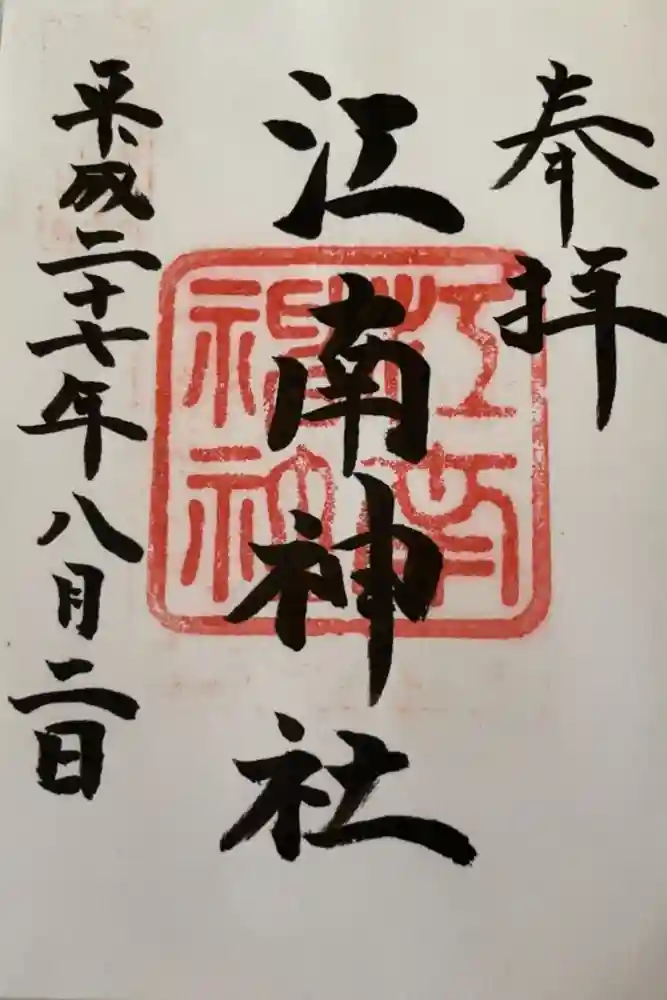 奉拝
江南神社
江南神社
平成二十七年八月二日